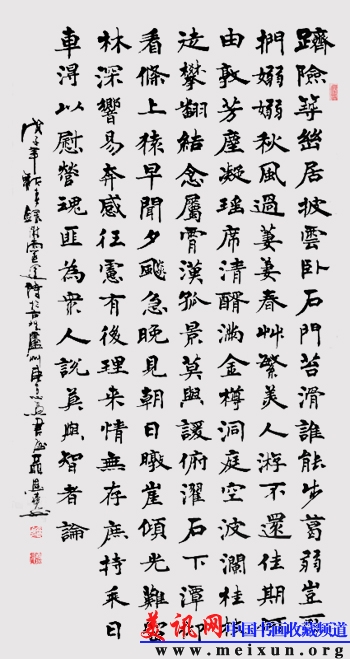 躋險築幽居披雲臥石門苔滑誰能步葛弱豈可
捫嫋嫋秋風過萋萋春艸繁美人游不還佳期何
由敦芳塵凝瑤席清醑滿金樽洞庭空波瀾桂枝
徒攀翻結念屬霄漢孤景莫與諼俯濯石下潭仰
看條上猿早聞夕飈急晚見朝日暾崖傾光難留
林深響易奔感往慮有後理来情無存庶持乘日
車得以慰營魂匪為眾人說冀與智者論
戊子年 錄 靈運詩於古 廬州
美讯网
中国书画收藏频道
www.meixun.org